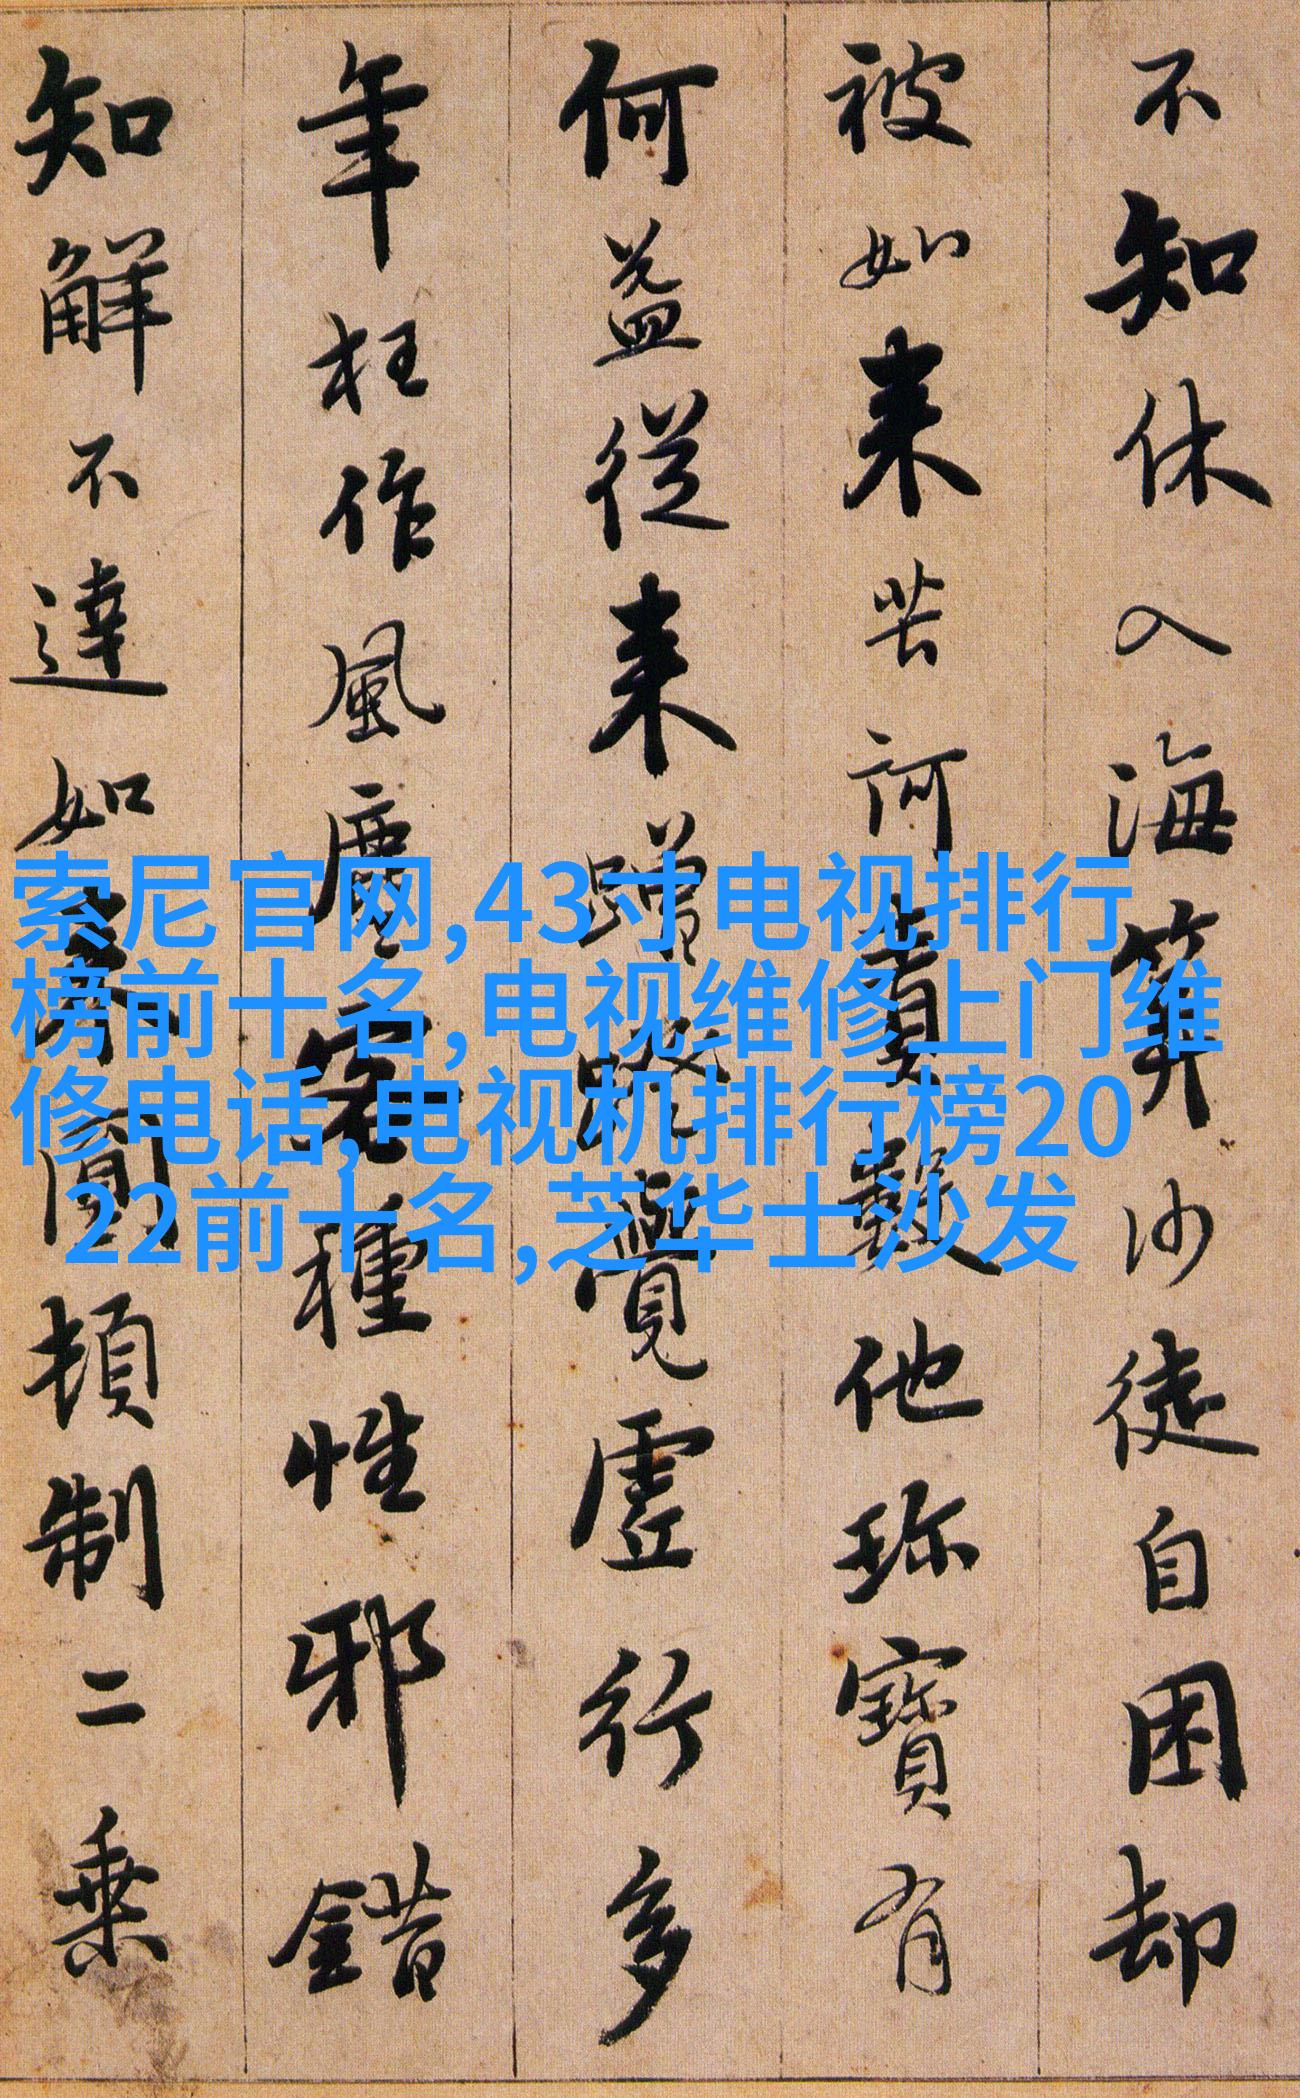 不知休入海算沙徒自困却
被如来苦訶責數他珎寶有
何益從来蹭蹬覺虛行多
年枉作風塵客種性邪錯
知解不達如来圓頓制二乗
索尼官网,43寸电视排行
榜前十名,电视维修上门维
修电话,电视机排行榜20
22前十名,芝华士沙发